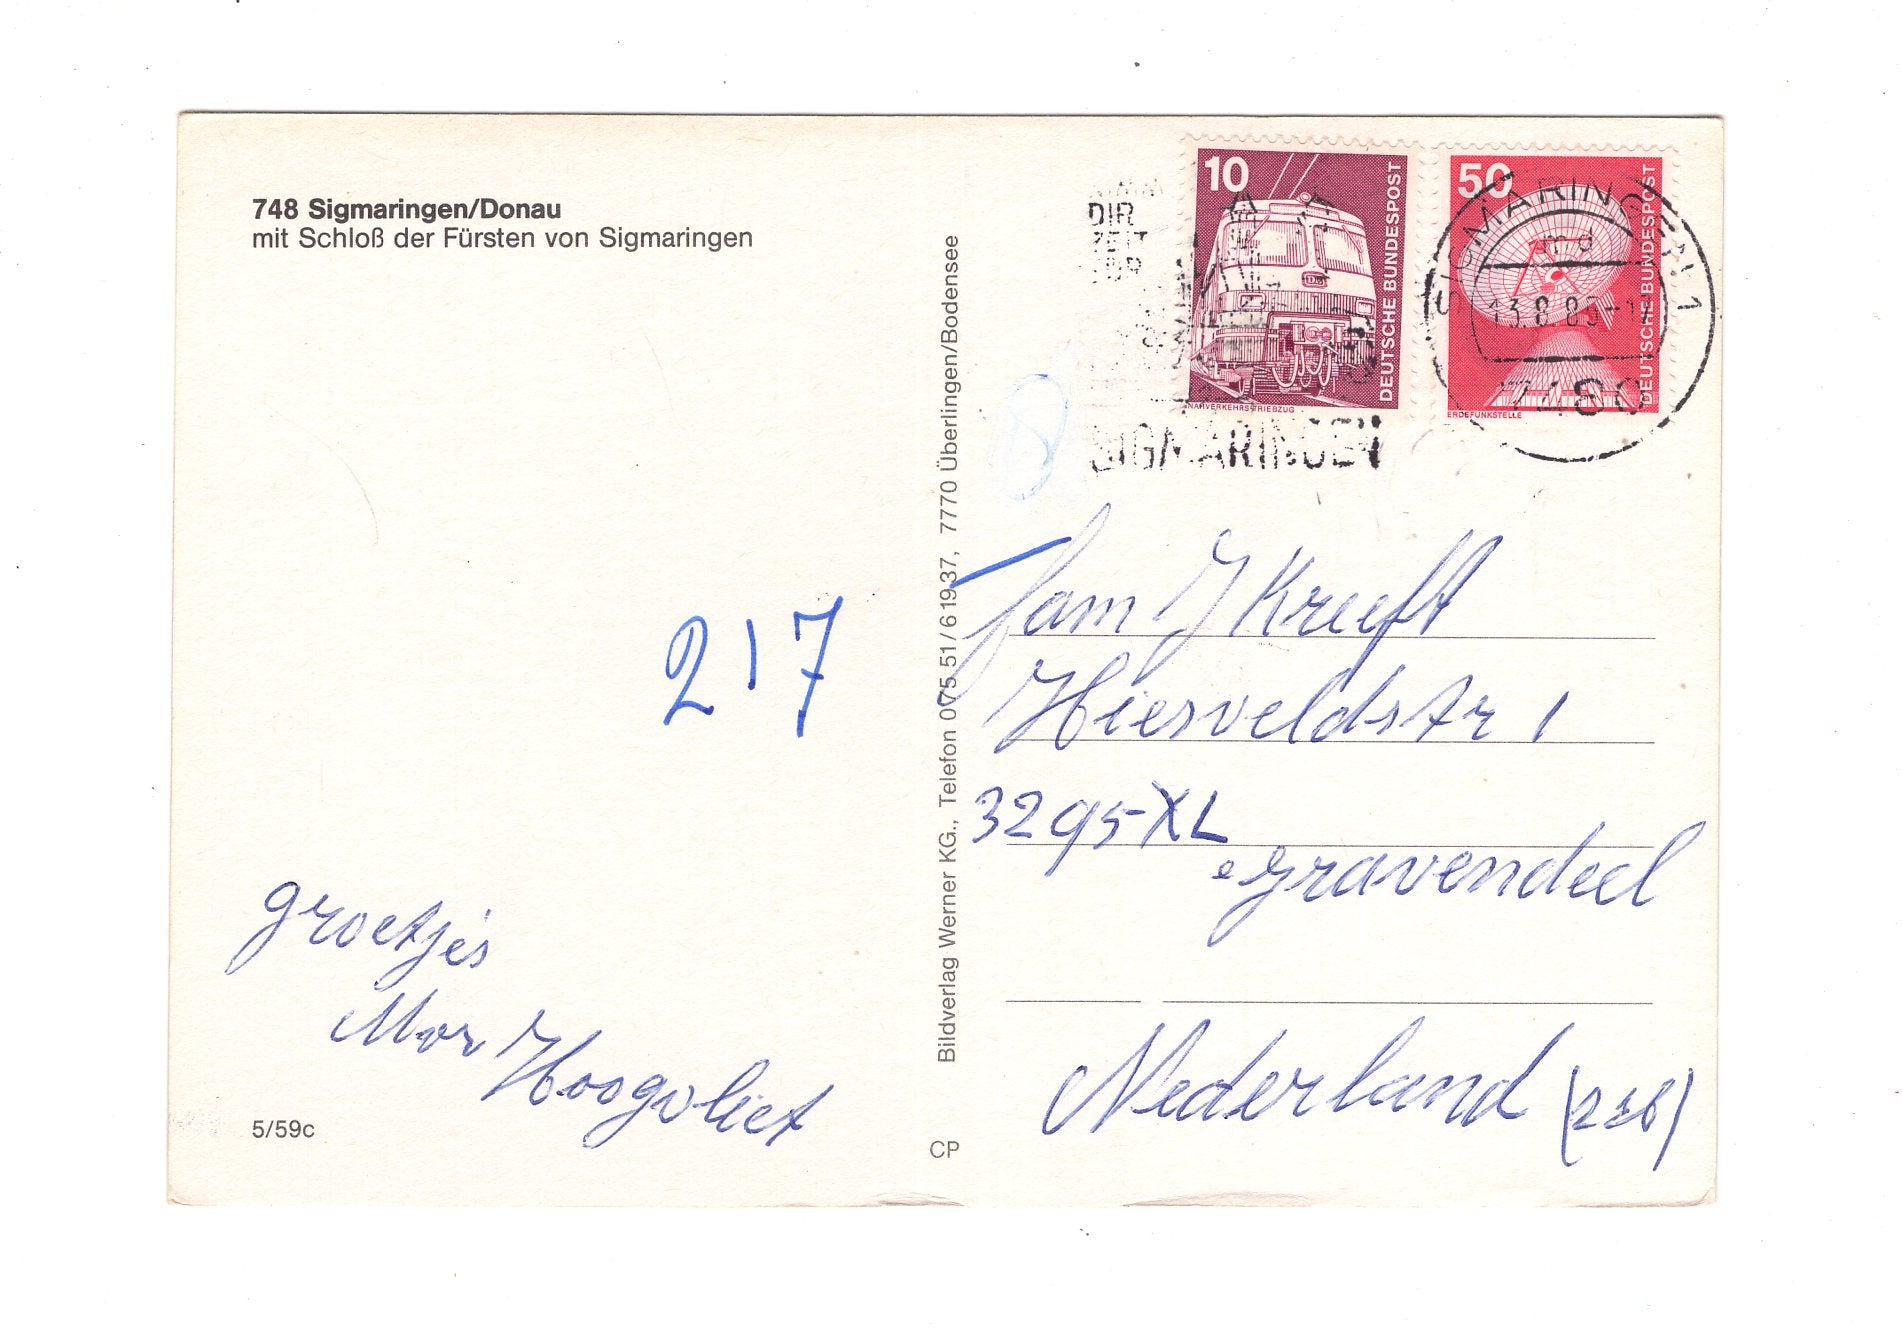 748 Sigmaringen/Donau
mit Schloß der Fürsten von Sigmaringen
217
groetjes
Mor Hoogvliet
5/59c
Bildverlag Werner KG., Telefon 075 51/619 37, 7770 Überlingen/Bodensee
CP
DIR
ZEIT
FÜR
SIGMARINGEN
10
DEUTSCHE BUNDESPOST
NAHVERKEHRS-TRIEBZUG
50
DEUTSCHE BUNDESPOST
ERDEFUNKSTELLE
SIGMARINGEN 1
md
13.8.85
7480
fam J Kreeft
Hiesveldstr 1
3295-XL
gravendeel
Nederland